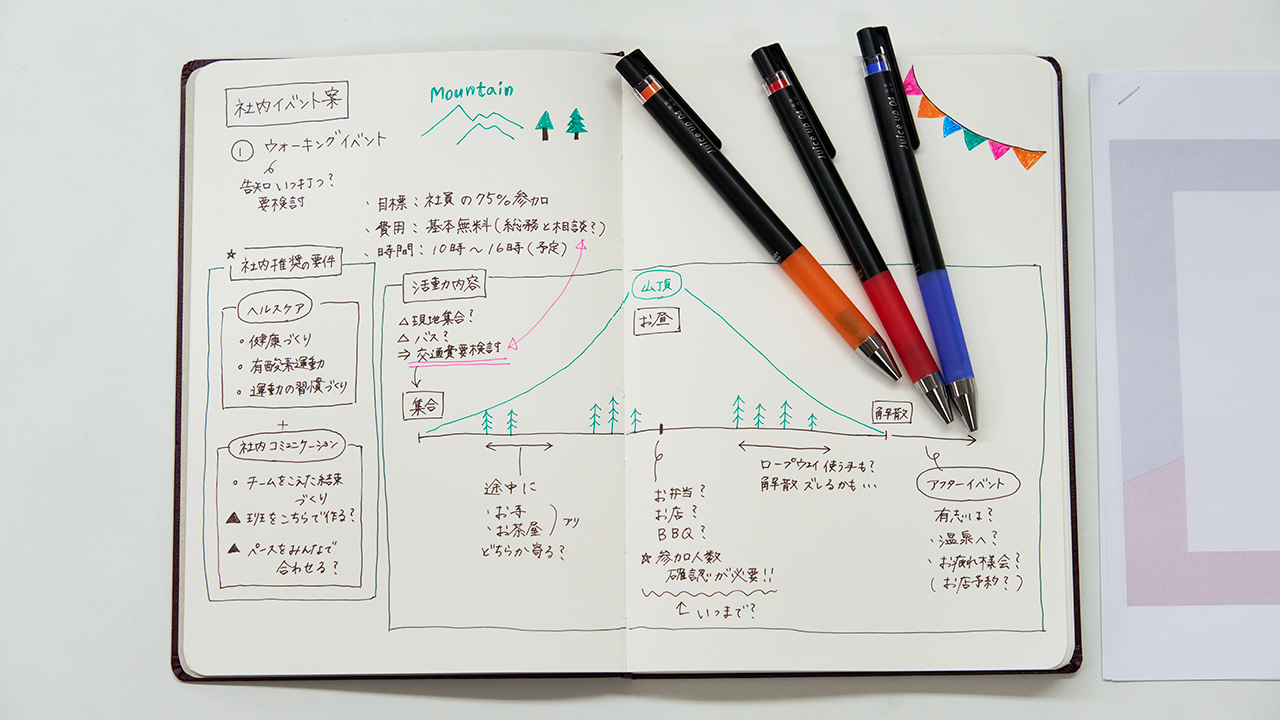 社内イベント案
① ウォーキングイベント
告知いつ打つ?
要検討
Mountain
、目標：社員の75%参加
、費用：基本無料(総務と相談?)
、時間：10時〜16時(予定)
☆ 社内推奨の要件
ヘルスケア
○ 健康づくり
○ 有酸素運動
○ 運動の習慣づくり
+
社内コミュニケーション
○ チームをこえた結束
づくり
▲ 班をこちらで作る?
▲ ペースをみんなで
合わせる?
活動内容
△ 現地集合?
△ バス?
⇒ 交通費要検討
集合
山頂
お昼
解散
途中に
・お寺
・お茶屋
アリ
どちらか寄る?
お弁当?
お店?
BBQ?
☆ 参加人数
確認が必要!!
↑ いつまで?
ロープウェイ使う手も?
解散ズレるかも…
アフターイベント
有志は?
・温泉へ?
・お疲れ様会?
(お店予約?)
Juice up 04
Juice up 04
Juice up 04